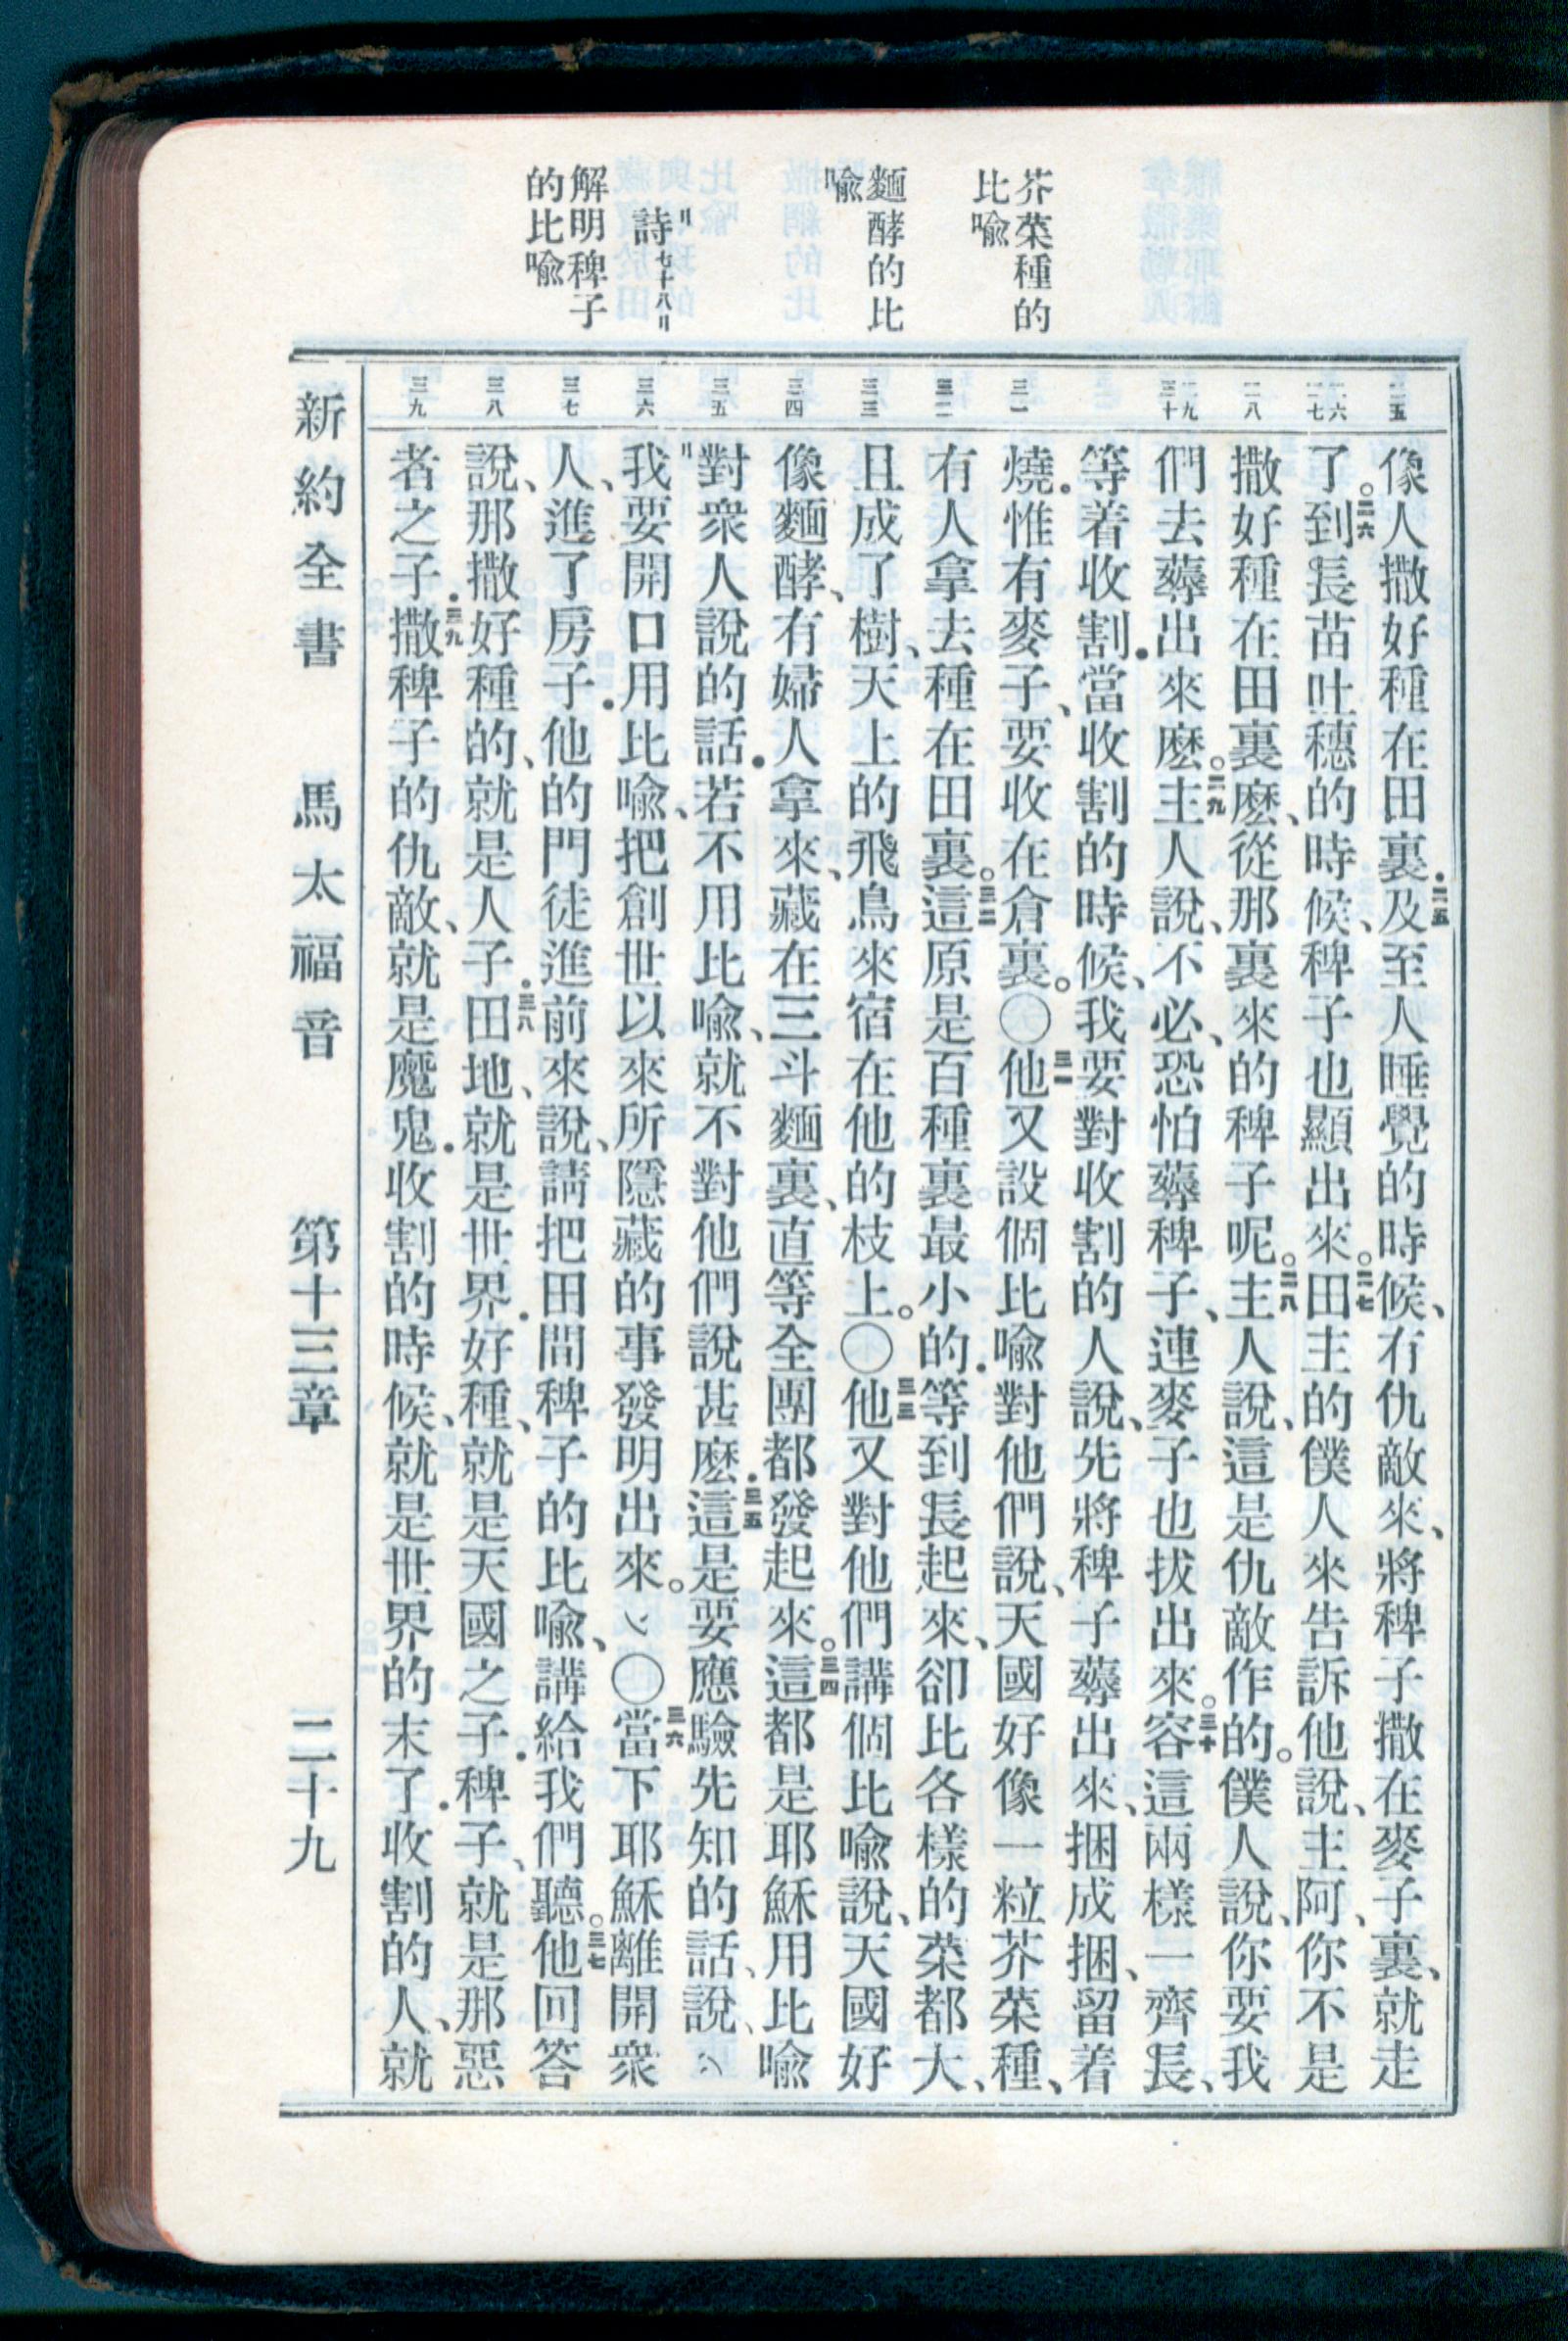 芥菜種的
比喩
麵酵的比
喩
〃詩七十八〃
解明稗子
的比喩
二五
二六
二七
二八
二九
三十
三一
三二
三三
三四
三五
三六
三七
三八
三九
像人撒好種在田裏．二五及至人睡覺的時候、有仇敵來、將稗子撒在麥子裏、就走
了。二六到長苗吐穗的時候、稗子也顯出來。二七田主的僕人來告訴他說、主阿、你不是
撒好種在田裏麽、從那裏來的稗子呢。二八主人說、這是仇敵作的。僕人說、你要我
們去薅出來麽。二九主人說、不必、恐怕薅稗子、連麥子也拔出來。三十容這兩樣一齊長、
等着收割．當收割的時候、我要對收割的人說、先將稗子薅出來、捆成捆、留着
燒．惟有麥子、要收在倉裏。〇三一他又設個比喩對他們說、天國好像一粒芥菜種、
有人拿去種在田裏。三二這原是百種裏最小的．等到長起來、卻比各樣的菜都大、
且成了樹、天上的飛鳥來宿在他的枝上。〇三三他又對他們講個比喩說、天國好
像麵酵、有婦人拿來、藏在三斗麵裏、直等全團都發起來。三四這都是耶穌用比喩
對衆人說的話．若不用比喩、就不對他們說甚麽．三五這是要應驗先知的話、說、〃
〃我要開口用比喩、把創世以來所隱藏的事發明出來。〃〇三六當下耶穌離開衆
人、進了房子．他的門徒進前來說、請把田間稗子的比喩、講給我們聽。三七他回答
說、那撒好種的、就是人子．三八田地、就是世界．好種、就是天國之子．稗子、就是那惡
者之子．三九撒稗子的仇敵、就是魔鬼．收割的時候、就是世界的末了．收割的人、就
新約全書 馬太福音 第十三章 二十九